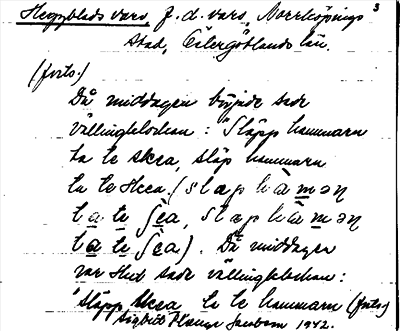 Hospsblads varv, f.d. varv, Norrköpings 3
stad, Östergötlands län.
(forts.)
Då middagen började sade
vällingklockan: "Släpp hammarn
ta te skea, släp hammarn
ta te skea (slæp hàməṇ
ta te ʃèa, slæp hàməṇ
ta te ʃèa). Då middagen
var slut sade vällingklockan:
"Släpp skea ta te hammarn (forts.)
Sigbrit Plænge Jansson 1942.